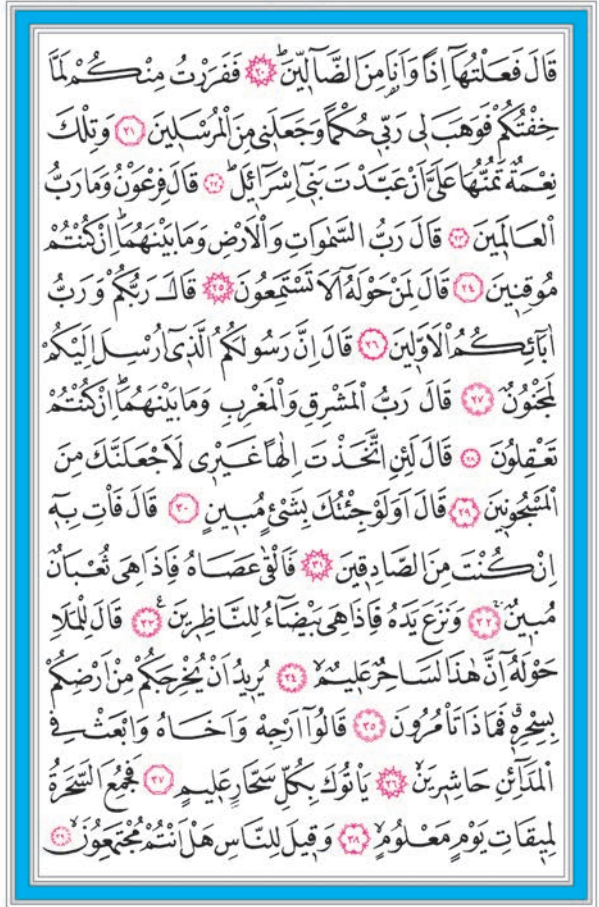 قَالَ فَعَلْتُهَٓا اِذًا وَاَنَا۬ مِنَ الضَّٓالّ۪ينَۜ ﴿٢٠﴾ فَفَرَرْتُ مِنْكُمْ لَمَّا
خِفْتُكُمْ فَوَهَبَ ل۪ي رَبّ۪ي حُكْمًا وَجَعَلَن۪ي مِنَ الْمُرْسَل۪ينَ ﴿٢١﴾ وَتِلْكَ
نِعْمَةٌ تَمُنُّهَا عَلَيَّ اَنْ عَبَّدْتَ بَن۪ٓي اِسْرَٓائ۪لَۜ ﴿٢٢﴾ قَالَ فِرْعَوْنُ وَمَا رَبُّ
الْعَالَم۪ينَ ﴿٢٣﴾ قَالَ رَبُّ السَّمٰوَاتِ وَالْاَرْضِ وَمَا بَيْنَهُمَاۜ اِنْ كُنْتُمْ
مُوقِن۪ينَ ﴿٢٤﴾ قَالَ لِمَنْ حَوْلَهُٓ اَلَا تَسْتَمِعُونَ ﴿٢٥﴾ قَالَ رَبُّكُمْ وَرَبُّ
اٰبَٓائِكُمُ الْاَوَّل۪ينَ ﴿٢٦﴾ قَالَ اِنَّ رَسُولَكُمُ الَّذ۪ٓي اُرْسِلَ اِلَيْكُمْ
لَمَجْنُونٌ ﴿٢٧﴾ قَالَ رَبُّ الْمَشْرِقِ وَالْمَغْرِبِ وَمَا بَيْنَهُمَاۜ اِنْ كُنْتُمْ
تَعْقِلُونَ ﴿٢٨﴾ قَالَ لَئِنِ اتَّخَذْتَ اِلٰهًا غَيْر۪ي لَاَجْعَلَنَّكَ مِنَ
الْمَسْجُون۪ينَ ﴿٢٩﴾ قَالَ اَوَلَوْ جِئْتُكَ بِشَيْءٍ مُب۪ينٍ ﴿٣٠﴾ قَالَ فَأْتِ بِه۪ٓ
اِنْ كُنْتَ مِنَ الصَّادِق۪ينَ ﴿٣١﴾ فَاَلْقٰى عَصَاهُ فَاِذَا هِيَ ثُعْبَانٌ
مُب۪ينٌۚ ﴿٣٢﴾ وَنَزَعَ يَدَهُ فَاِذَا هِيَ بَيْضَٓاءُ لِلنَّاظِر۪ينَ۟ ﴿٣٣﴾ قَالَ لِلْمَلَأِ
حَوْلَهُٓ اِنَّ هٰذَا لَسَاحِرٌ عَل۪يمٌۙ ﴿٣٤﴾ يُر۪يدُ اَنْ يُخْرِجَكُمْ مِنْ اَرْضِكُمْ
بِسِحْرِه۪ۗ فَمَاذَا تَأْمُرُونَ ﴿٣٥﴾ قَالُٓوا اَرْجِهْ وَاَخَاهُ وَابْعَثْ فِي
الْمَدَٓائِنِ حَاشِر۪ينَۙ ﴿٣٦﴾ يَأْتُوكَ بِكُلِّ سَحَّارٍ عَل۪يمٍ ﴿٣٧﴾ فَجُمِعَ السَّحَرَةُ
لِم۪يقَاتِ يَوْمٍ مَعْلُومٍۙ ﴿٣٨﴾ وَق۪يلَ لِلنَّاسِ هَلْ اَنْتُمْ مُجْتَمِعُونَۙ ﴿٣٩﴾